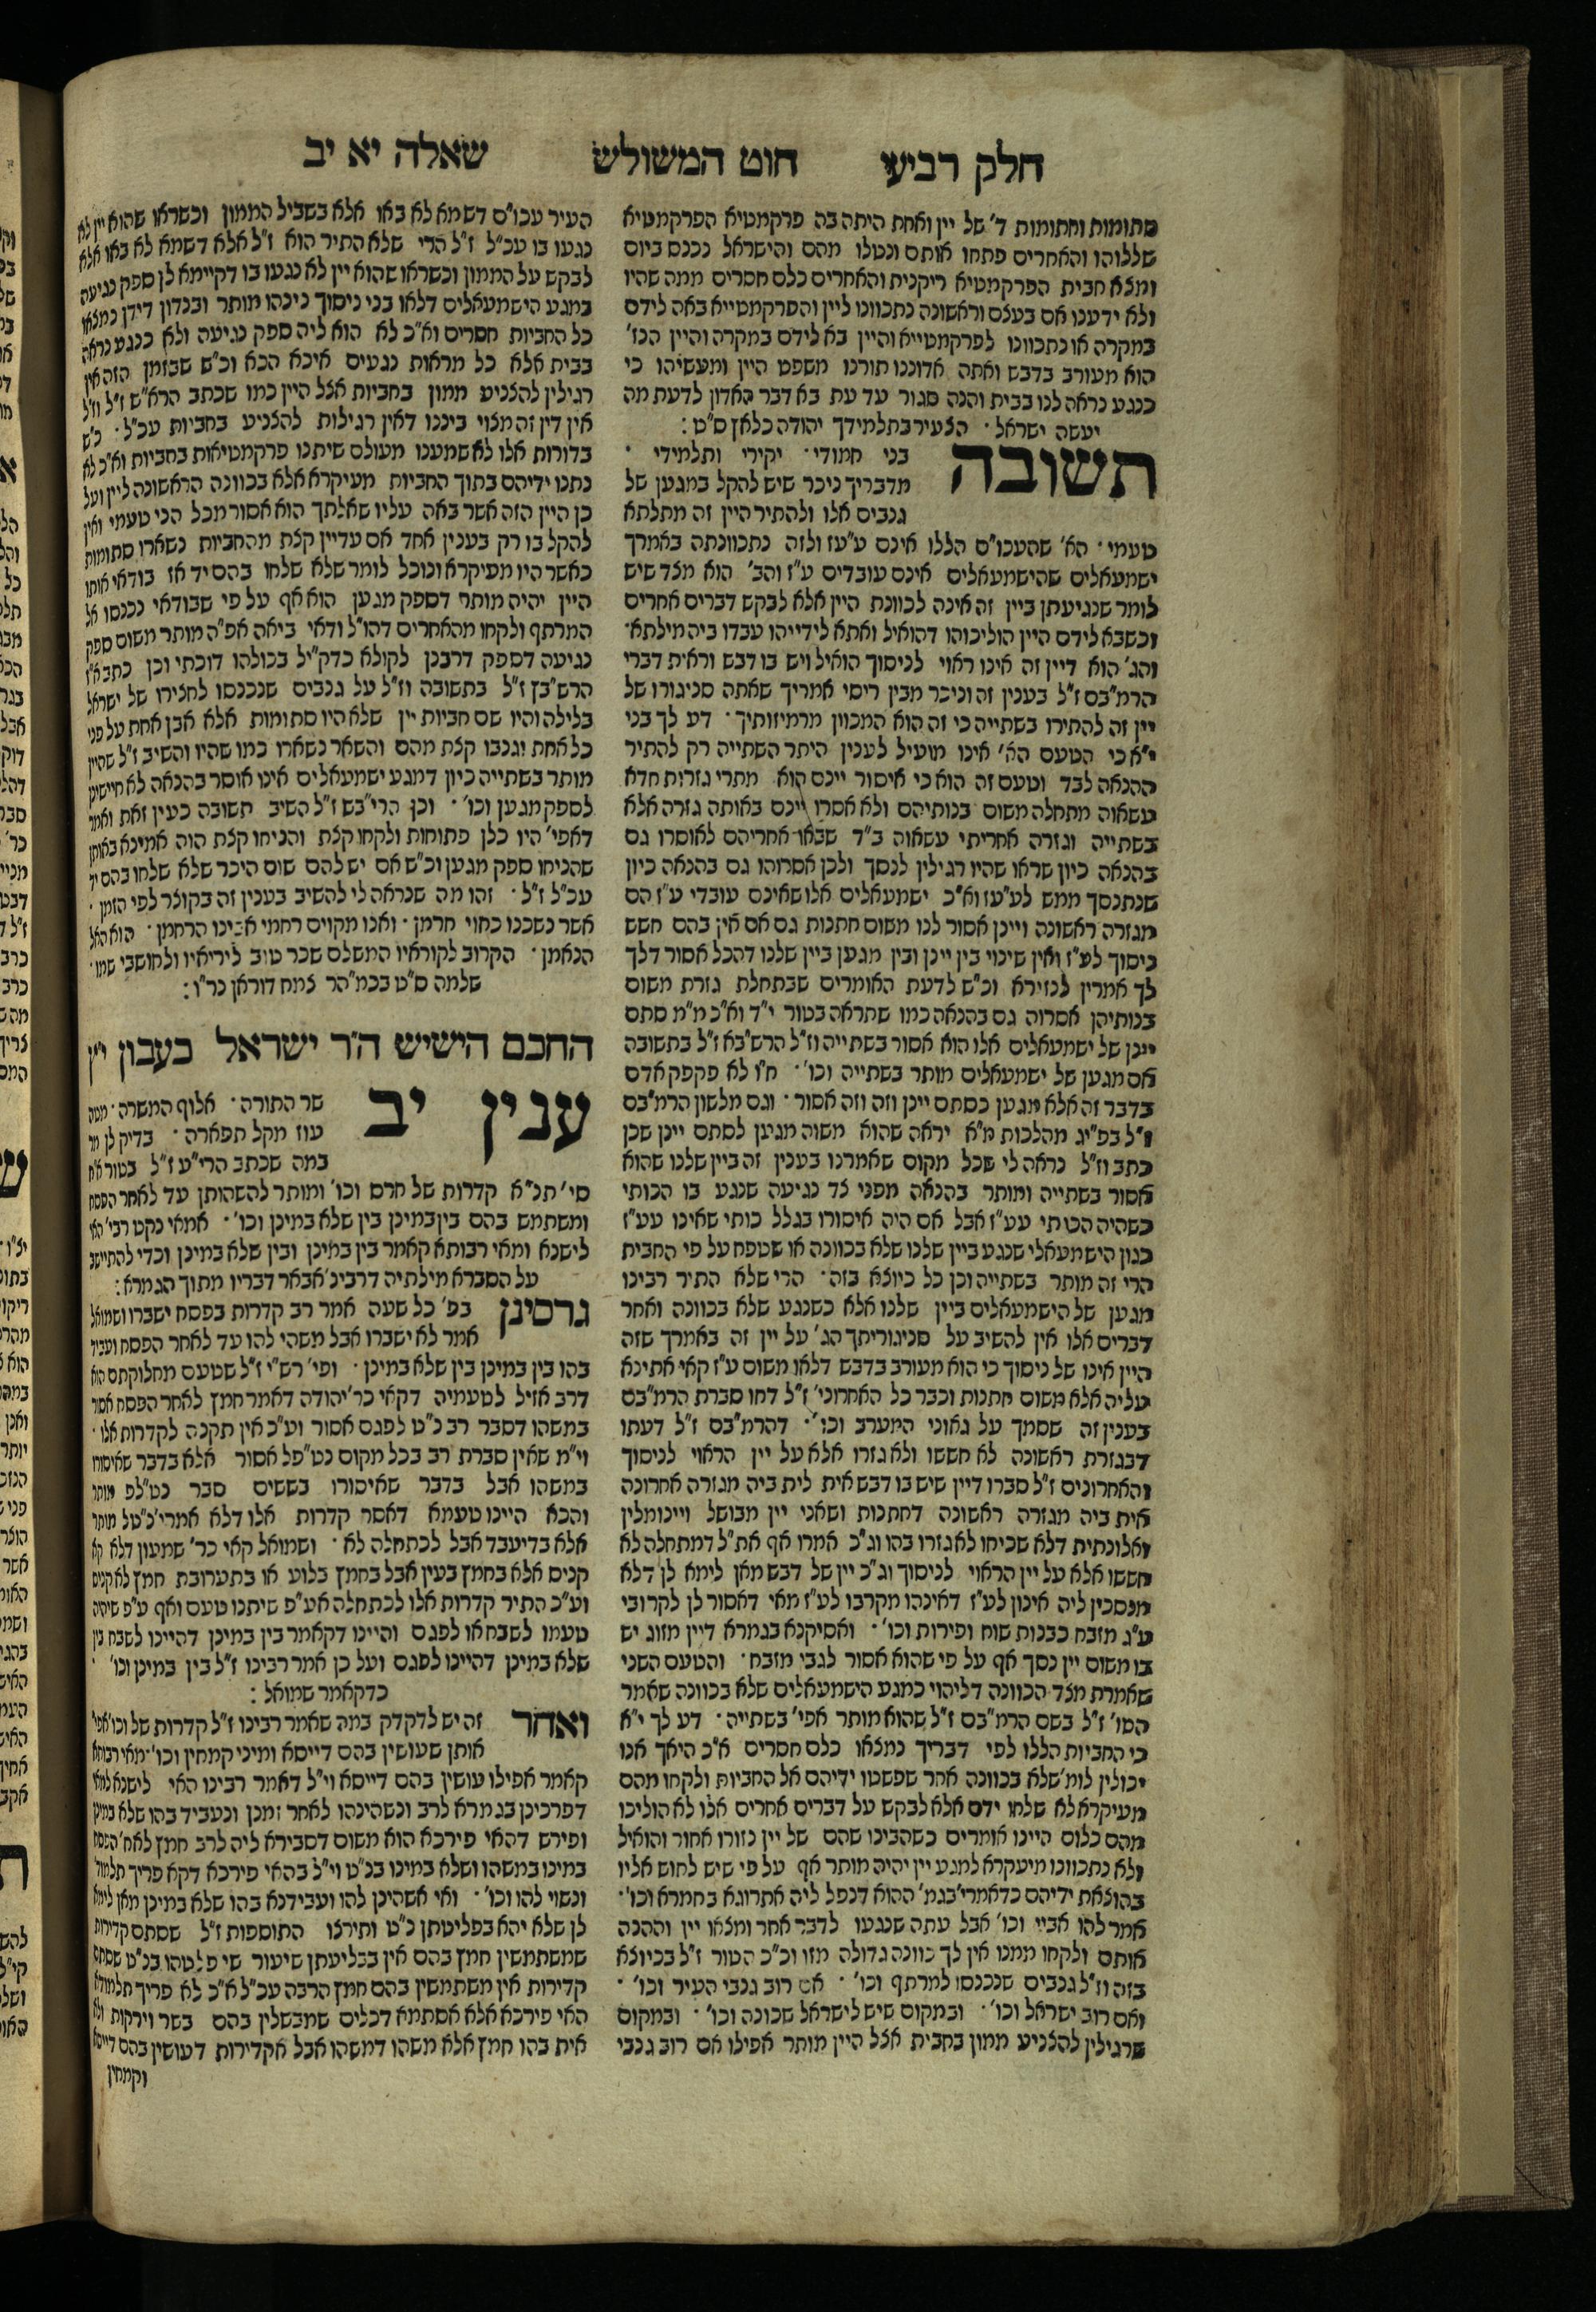 חלק רביעי חוט המשולש שאלה יא יב
סתומות וחתומות ד' של יין ואחת היתה בה פרקמטיא הפרקמטיא
שללוהו והאחרים פתחו אותם ונטלו מהם והישראל נכנס ביום
ומצא חבית הפרקמטיא ריקנית והאחרים כלם חסרים ממה שהיו
ולא ידענו אם בעצם וראשונה נתכוונו ליין והפרקמטייא באה לידם
במקרה או נתכוונו לפרקמטייא והיין בא לידם במקרה והיין הנז'
הוא מעורב בדבש ואתה אדוננו תורנו משפט היין ומעשיהו כי
כנגע נראה לנו בבית והנה סגור עד עת בא דבר האדון לדעת מה
יעשה ישראל· הצעיר בתלמידך יהודה כלאץ ס"ט :
תשובה בני חמודי· יקירי ותלמידי ·
מדבריך ניכר שיש להקל במגען של
גנבים אלו ולהתיר היין זה מתלתא
טעמי· הא' שהעכו"ם הללו אינם ע"עז ולזה נתכוונתה באמרך
ישמעאלים שהישמעאלים אינם עובדים ע"ז והב' הוא מצד שיש
לומר שנגיעתן ביין זה אינה לכוונת היין אלא לבקש דברים אחרים
וכשבא לידם היין הוליכוהו דהואיל ואתא לידייהו עבדו ביה מילתא·
והג' הוא דיין זה אינו ראוי לניסוך הואיל ויש בו דבש וראית דברי
הרמ"בם ז"ל בענין זה וניכר מבין ריסי אמריך שאתה סניגורו של
יין זה להתירו בשתייה כי זה הוא המכוון מרמיזותיך· דע לך בני
י"א כי הטעם הא' אינו מועיל לענין היתר השתייה רק להתיר
ההנאה לבד וטעם זה הוא כי איסור יינם הוא מתרי גזרות חדא
עשאוה מתחלה משום בנותיהם ולא אסרו יינם באותה גזרה אלא
בשתייה וגזרה אחריתי עשאוה ב"ד שבאו אחריהם לאוסרו גם
בהנאה כיון שראו שהיו רגילין לנסך ולכן אסרוהו גם בהנאה כיון
שנתנסך ממש לע"עז וא"כ ישמעאלים אלו שאינם עובדי ע"ז הם
מגזרה ראשונה ויינן אסור לנו משום חתנות גם אם אין בהם חשש
ניסוך לע"ז ואין שינוי בין יינן ובין מגען ביין שלנו דהכל אסור דלך
לך אמרין לנזירא וכ"ש לדעת האומרים שבתחלת גזרת משום
בנותיהן אסרוה גם בהנאה כמו שתראה בטור י"ד וא"כ מ"מ סתם
יינן של ישמעאלים אלו הוא אסור בשתייה וז"ל הרש"בא ז"ל בתשובה
אם מגען של ישמעאלים מותר בשתייה וכו'· ח"ו לא פקפק אדם
בדבר זה אלא מגען כסתם יינן וזה וזה אסור· וגם מלשון הרמ"בם
ז"ל בפ"יג מהלכות מ"א יראה שהוא משוה מגען לסתם יינן שכן
כתב וז"ל נראה לי שכל מקום שאמרנו בענין זה ביין שלנו שהוא
אסור בשתייה ומותר בהנאה מפני צד נגיעה שנגע בו הכותי
כשהיה הכותי עע"ז אבל אם היה איסורו בגלל כותי שאינו עע"ז
כגון הישמעאלי שנגע ביין שלנו שלא בכוונה או שטפח על פי החבית
הרי זה מותר בשתייה וכן כל כיוצא בזה· הרי שלא התיר רבינו
מגען של הישמעאלים ביין שלנו אלא כשנגע שלא בכוונה ואחר
דברים אלו אין להשיב על סניגוריתך הג' על יין זה באמרך שזה
היין אינו של ניסוך כי הוא מעורב בדבש דלאו משום ע"ז קאי אתינא
עליה אלא משום חתנות וכבר כל האחרוני' ז"ל דחו סברת הרמ"בם
בענין זה שסמך על גאוני המערב וכו'· דהרמ"בם ז"ל דעתו
דבגזרת ראשונה לא חששו ולא גזרו אלא על יין הראוי לניסוך
והאחרונים ז"ל סברו דיין שיש בו דבש אית לית ביה מגזרה אחרונה
אית ביה מגזרה ראשונה דחתנות ושאני יין מבושל ויינומלין
ואלונתית דלא שכיחו לא גזרו בהו וג"כ אמרו אף את"ל דמתחלה לא
חששו אלא על יין הראוי לניסוך וג"כ יין של דבש מאן לימא לן דלא
מנסכין ליה אינון לע"ז דאינהו מקרבו לע"ז מאי דאסור לן לקרובי
ע"ג מזבח כבנות שוח ופירות וכו'· ואסיקנא בגמרא דיין מזוג יש
בו משום יין נסך אף על פי שהוא אסור לגבי מזבח· והטעם השני
שאמרת מצד הכוונה דליהוי כמגע הישמעאלים שלא בכוונה שאמר
המו' ז"ל בשם הרמ"בם ז"ל שהוא מותר אפי' בשתייה· דע לך י"א
כי החביות הללו לפי דבריך נמצאו כלם חסרים א"כ היאך אנו
יכולין לומ' שלא בכוונה אחר שפשטו ידיהם אל החביות ולקחו מהם
מעיקרא לא שלחו ידם אלא לבקש על דברים אחרים אלו לא הוליכו
מהם כלום היינו אומרים כשהבינו שהם של יין נזורו אחור והואיל
ולא נתכוונו מיעקרא למגע יין יהיה מותר אף על פי שיש לחוש אליו
בהוצאת ידיהם כדאמרי' בגמ' ההוא דנפל ליה אתרוגא בחמרא וכו'·
אמר להו אביי וכו' אבל עתה שנגעו לדבר אחר ומצאו יין וההנה
אותם ולקחו ממנו אין לך כוונה גדולה מזו וכ"כ הטור ז"ל בכיוצא
בזה וז"ל גנבים שנכנסו למרתף וכו'· אם רוב גנבי העיר וכו' ·
ואם רוב ישראל וכו'· ובמקום שיש לישראל שכונה וכו'· ובמקום
שרגילין להצניע ממון בחבית אצל היין מותר אפילו אם רוב גנבי
העיר עכו"ם דשמא לא באו אלא בשביל הממון וכשראו שהוא יין לא
נגעו בו עכ"ל ז"ל הרי שלא התיר הוא ז"ל אלא דשמא לא באו אלא
לבקש על הממון וכשראו שהוא יין לא נגעו בו דקיימא לן ספק נגיעה
במגע הישמעאלים דלאו בני ניסוך נינהו מותר ובנדון דידן נמצאו
כל החביות חסרים וא"כ לא הוא ליה ספק נגיעה ולא כנגע נראה
בבית אלא כל מראות נגעים איכא הכא וכ"ש שבזמן הזה אין
רגילין להצניע ממון בחביות אצל היין כמו שכתב הרא"ש ז"ל וז"ל
אין דין זה מצוי ביננו דאין רגילות להצניע בחביות עכ"ל· כ"ש
בדורות אלו לא שמענו מעולם שיתנו פרקמטיאות בחביות וא"כ לא
נתנו ידיהם בתוך החביות מעיקרא אלא בכוונה הראשונה ליין ועל
כן היין הזה אשר באה עליו שאלתך הוא אסור מכל הני טעמי ואין
להקל בו רק בענין אחד אם עדיין קצת מהחביות נשארו סתומות
כאשר היו מעיקרא ונוכל לומר שלא שלחו בהם יד אז בודאי אותו
היין יהיה מותר דספק מגען הוא אף על פי שבודאי נכנסו אל
המרתף ולקחו מהאחרים דהו"ל ודאי ביאה אפ"ה מותר משום ספק
נגיעה דספק דרבנן לקולא כדק"יל בכולהו דוכתי וכן כתב א"ז
הרש"בץ ז"ל בתשובה וז"ל על גנבים שנכנסו לחצירו של ישראל
בלילה והיו שם חביות יין שלא היו סתומות אלא אבן אחת על פני
כל אחת וגנבו קצת מהם והשאר נשארו כמו שהיו והשיב ז"ל שהיין
מותר בשתייה כיון דמגע ישמעאלים אינו אוסר בהנאה לא חיישינן
לספק מגען וכו'· וכן הרי"בש ז"ל השיב תשובה כעין זאת ואמר
דאפי' היו כלן פתוחות ולקחו קצת והניחו קצת הוה אמינא באותן
שהניחו ספק מגען וכ"ש אם יש להם שום היכר שלא שלחו בהם יד
עכ"ל ז"ל· זהו מה שנראה לי להשיב בענין זה בקוצר לפי הזמן ·
אשר נשכנו כחוי חרמן· ואנו מקוים רחמי אבינו הרחמן· הוא האל
הנאמן· הקרוב לקוראיו המשלם שכר טוב ליריאיו ולחושבי שמו·
שלמה ס"ט בכמ"הר צמח דוראן נר"ו :
החכם הישיש ה"ר ישראל בעבון י"ץ
ענין יב שר התורה· אלוף המשרה· מטה
עוז מקל תפארה· בדיק לן מר
במה שכתב הרי"ע ז"ל בטור א"ח
סי' תנ"א קדרות של חרס וכו' ומותר להשהותן עד לאחר הפסח
ומשתמש בהם בין במינן בין שלא במינן וכו'· אמאי נקט רבי' האי
לישנא ומאי רבותא קאמר בין במינן ובין שלא במינן וכדי להתיישב
על הסברא מילתיה דרבינ' אבאר דבריו מתוך הגמרא :
גרסינן בפ' כל שעה אמר רב קדרות בפסח ישברו ושמואל
אמר לא ישברו אבל משהי להו עד לאחר הפסח ועביד
בהו בין במינן בין שלא במינן· ופי' רש"י ז"ל שטעם מחלוקתם הוא
דרב אזיל לטעמיה דקאי כר' יהודה דאמר חמץ לאחר הפסח אסור
במשהו דסבר רב נ"ט לפגם אסור וע"כ אין תקנה לקדרות אלו·
וי"מ שאין סברת רב בכל מקום נט"פל אסור אלא בדבר שאיסורו
במשהו אבל בדבר שאיסורו בששים סבר נט"לפ מותר
והכא היינו טעמא דאסר קדרות אלו דלא אמרי' נ"טל מותר
אלא בדיעבד אבל לכתחלה לא· ושמואל קאי כר' שמעון דלא קא
קניס אלא בחמץ בעין אבל בחמץ בלוע או בתערובת חמץ לא קניס
וע"כ התיר קדרות אלו לכתחלה אע"פ שיתנו טעם ואף ע"פ שיהיה
טעמו לשבח או לפגם והיינו דקאמר בין במינן דהיינו לשבח בין
שלא במינן דהיינו לפגם ועל כן אמר רבינו ז"ל בין במינן וכו' ·
כדקאמר שמואל :
ואחר זה יש לדקדק במה שאמר רבינו ז"ל קדרות של וכו' אפי'
אותן שעושין בהם דייסא ומיני קמחין וכו'· מאי רבותא
קאמר אפילו עושין בהם דייסא וי"ל דאמר רבינו האי לישנא למאי
דפרכינן בגמרא לרב ונשהינהו לאחר זמנן ונעביד בהו שלא במינן
ופירש דהאי פירכא הוא משום דסבירא ליה לרב חמץ לאח' הפסח
במינו במשהו ושלא במינו בנ"ט וי"ל בהאי פירכא דקא פריך תלמוד'
ונשוי להו וכו'· ואי אשהינן להו ועבידנא בהו שלא במינן מאן לימא
לן שלא יהא בפליטתן נ"ט ותירצו התוספות ז"ל שסתם קדירות
שמשתמשין חמץ בהם אין בבליעתן שיעור שיפלטהו בנ"ט שסתם
קדירות אין משתמשין בהם חמץ הרבה עכ"ל א"כ לא פריך תלמודא
האי פירכא אלא אסתמא דכלים שמבשלין בהם בשר וירקות ולא
אית בהו חמץ אלא משהו דמשהו אבל אקדירות דעושין בהם דייסא
וקמחין